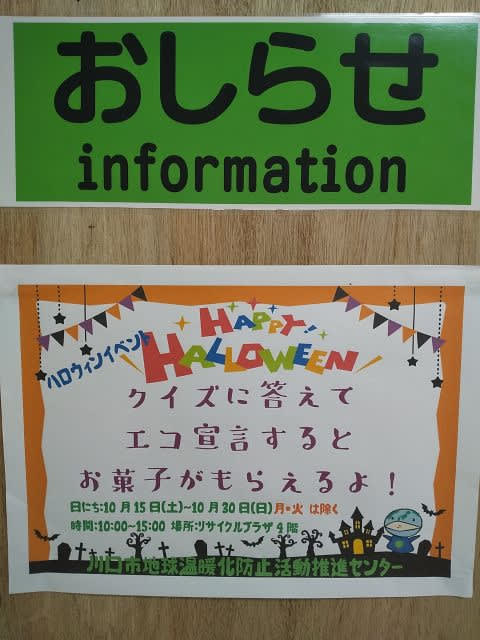 おしらせ
information
ハロウィンイベント
HAPPY!
HALLOWEEN
クイズに答えて
エコ宣言すると
お菓子がもらえるよ！
日にち:10月15日(土)~10月30日(日)月・火は除く
時間:10:00~15:00 場所:リサイクルプラザ4階
川口市地球温暖化防止活動推進センター